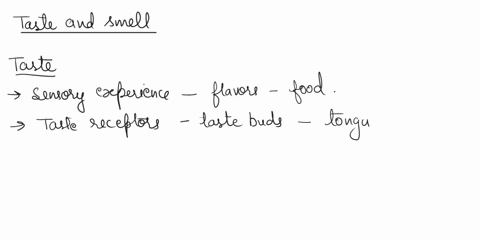 Taste and smell
Taste
→ Sensory experience – flavors – food.
→ Taste receptors – taste buds – tongu